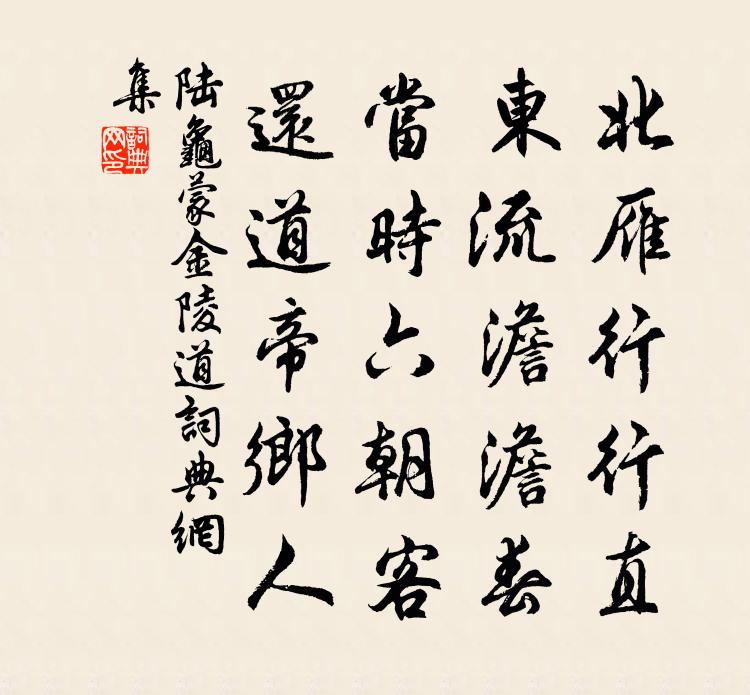 北雁行行直
東流澹澹春
當時六朝客
還道帝鄉人
陸龜蒙金陵道詞典網
集
詞典網印